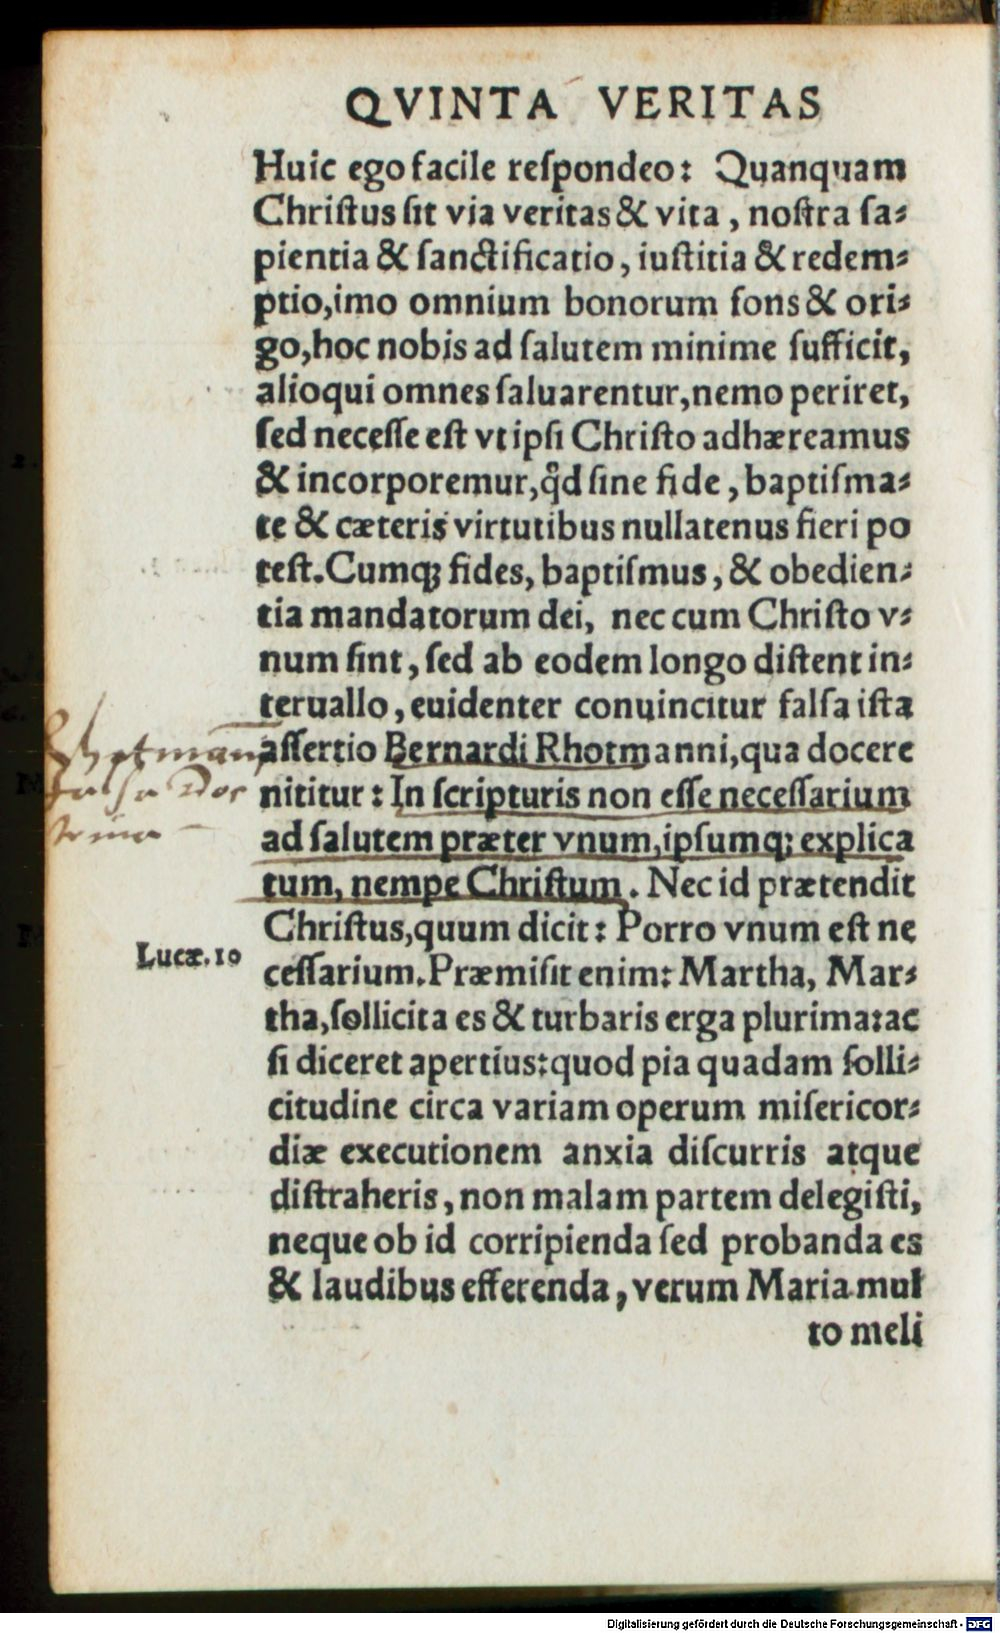 QVINTA VERITAS
Huic ego facile reſpondeo: Quanquam
Chriſtus ſit via veritas & vita, noſtra ſa⸗
pientia & ſanctificatio, iuſtitia & redem⸗
ptio, imo omnium bonorum fons & ori⸗
go, hoc nobis ad ſalutem minime ſufficit,
alioqui omnes ſaluarentur, nemo periret,
ſed neceſſe eſt vt ipſi Chriſto adhæreamus
& incorporemur, qd̉ ſine fide, baptiſma⸗
te & cæteris virtutibus nullatenus fieri po
teſt. Cumqꝫ fides, baptiſmus, & obedien⸗
tia mandatorum dei, nec cum Chriſto v⸗
num ſint, ſed ab eodem longo diſtent in⸗
teruallo, euidenter conuincitur falſa iſta
aſſertio Bernardi Rhotmanni, qua docere
nititur: In ſcripturis non eſſe neceſſarium
ad ſalutem præter vnum, ipſumq; explica
tum, nempe Chriſtum. Nec id prætendit
Chriſtus, quum dicit: Porro vnum eſt ne
ceſſarium. Præmiſit enim: Martha, Mar⸗
tha, ſollicita es & turbaris erga plurima: ac
ſi diceret apertius: quod pia quadam ſolli⸗
citudine circa variam operum miſericor⸗
diæ executionem anxia diſcurris atque
diſtraheris, non malam partem delegiſti,
neque ob id corripienda ſed probanda es
& laudibus efferenda, verum Maria mul
to meli
Rhotmanni
falſa Doc
trina
Lucæ. 10
Digitalisierung gefördert durch die Deutsche Forschungsgemeinschaft - DFG